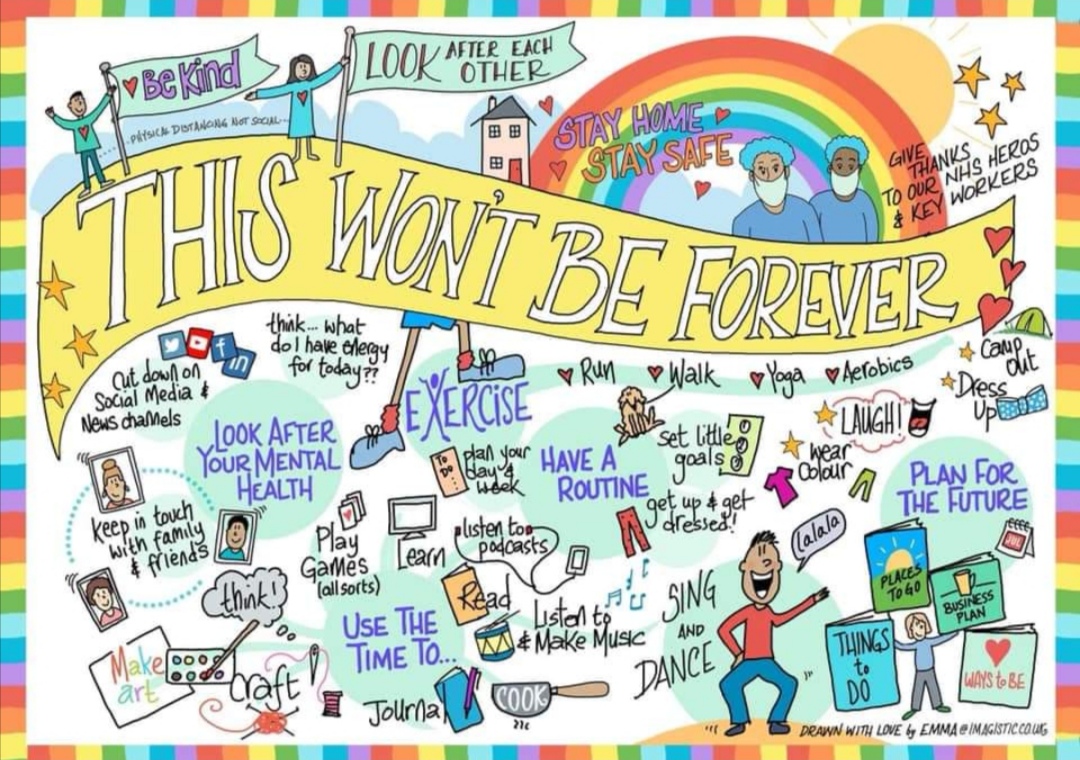 Be Kind
LOOK AFTER EACH
OTHER
PHYSICAL DISTANCING NOT SOCIAL
STAY HOME
STAY SAFE
GIVE
THANKS
TO OUR NHS HEROS
& KEY WORKERS
THIS WON'T BE FOREVER
think... what
do I have energy
for today??
Cut down on
Social Media &
News channels
f
in
LOOK AFTER
YOUR MENTAL
HEALTH
keep in touch
with family
& friends
think!
EXERCISE
Run
Walk
Yoga
Aerobics
Camp
out
Dress
Up
LAUGH!
wear
colour
plan your
day &
week
HAVE A
ROUTINE
set little
goals
get up & get
dressed!
PLAN FOR
THE FUTURE
JUL
PLACES
TO GO
BUSINESS
PLAN
THINGS
to
DO
WAYS to BE
Play
Games
(all sorts)
Learn
listen to
podcasts
Read
Listen to
& Make Music
USE THE
TIME TO...
Make
art
craft
Journal
COOK
SING
AND
DANCE
lalala
DRAWN WITH LOVE by EMMA@IMAGISTIC.CO.UK